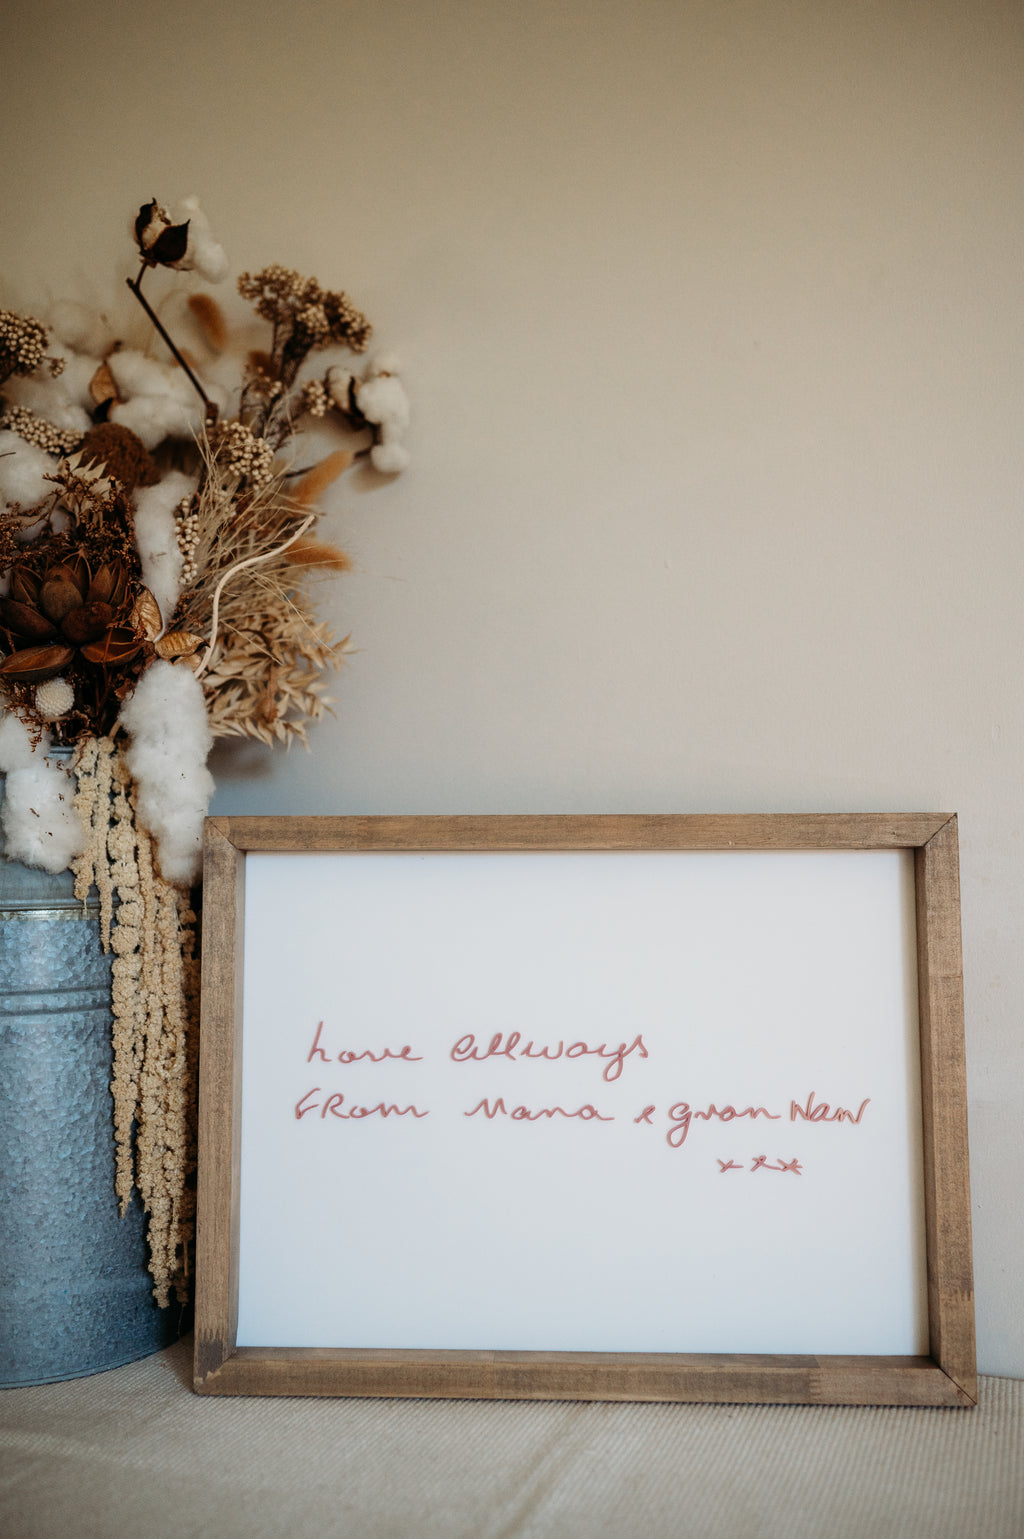 Love allways
FRom Nana & gran Naw
xxx